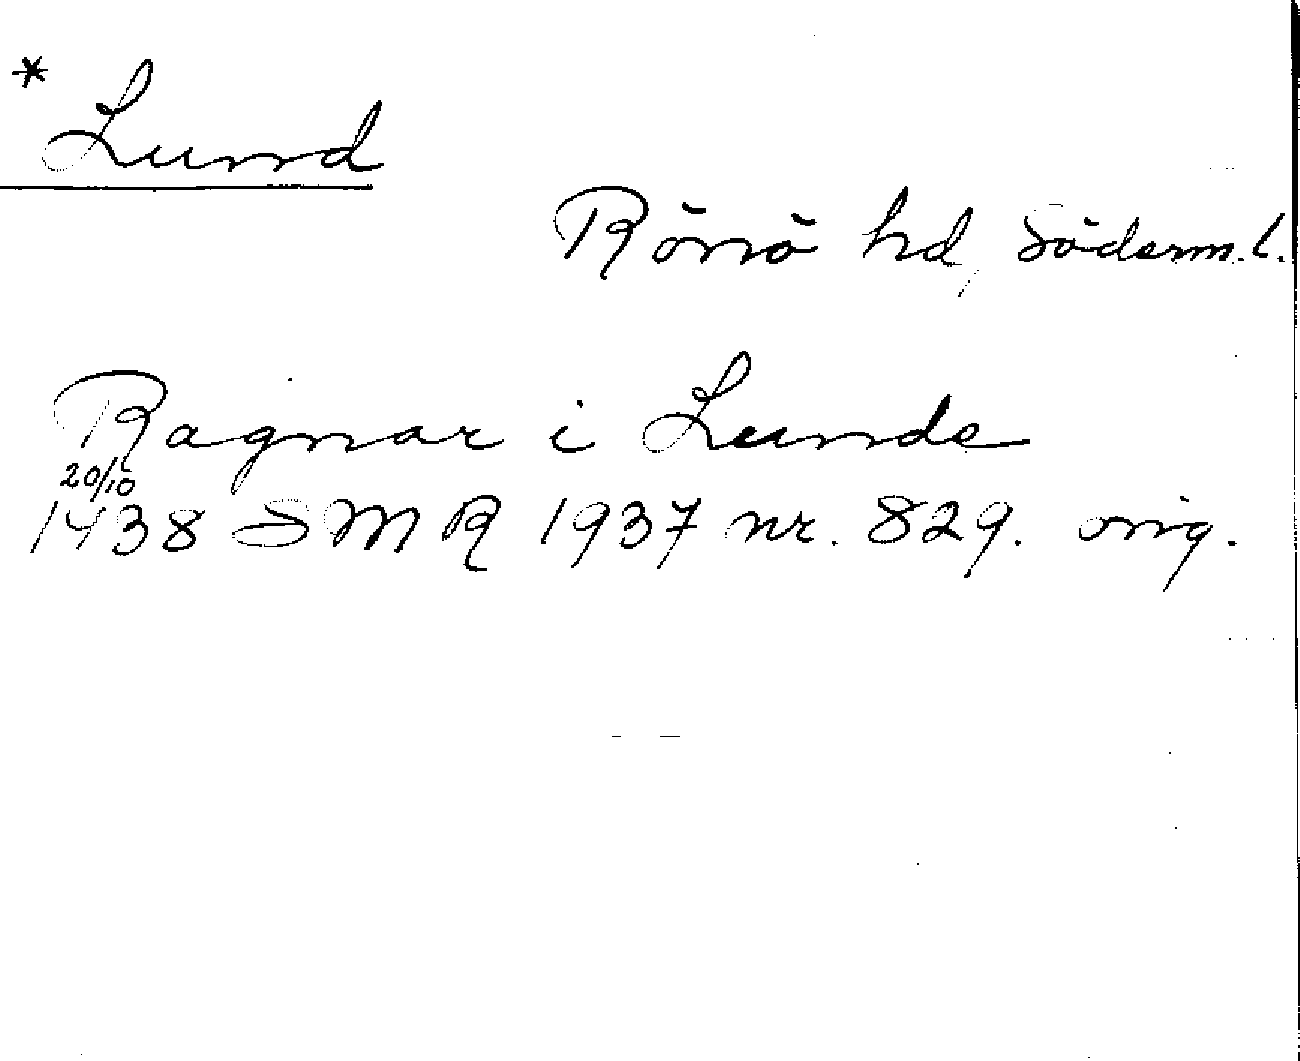 * Lund
Rönö hd, Söderm. l.
Ragnar i Lunde
20/10
1438 SMR 1937 nr. 829. orig.